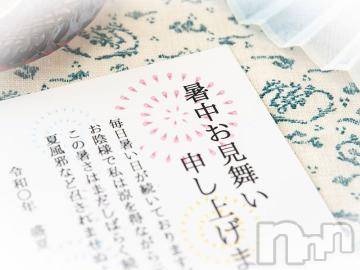 暑中お見舞い
申し上げま
毎日暑い日が続いております
お陰様で私は涼を得ながら
この暑さはまだしばらく続
夏風邪など召されませぬ
令和〇年　盛夏